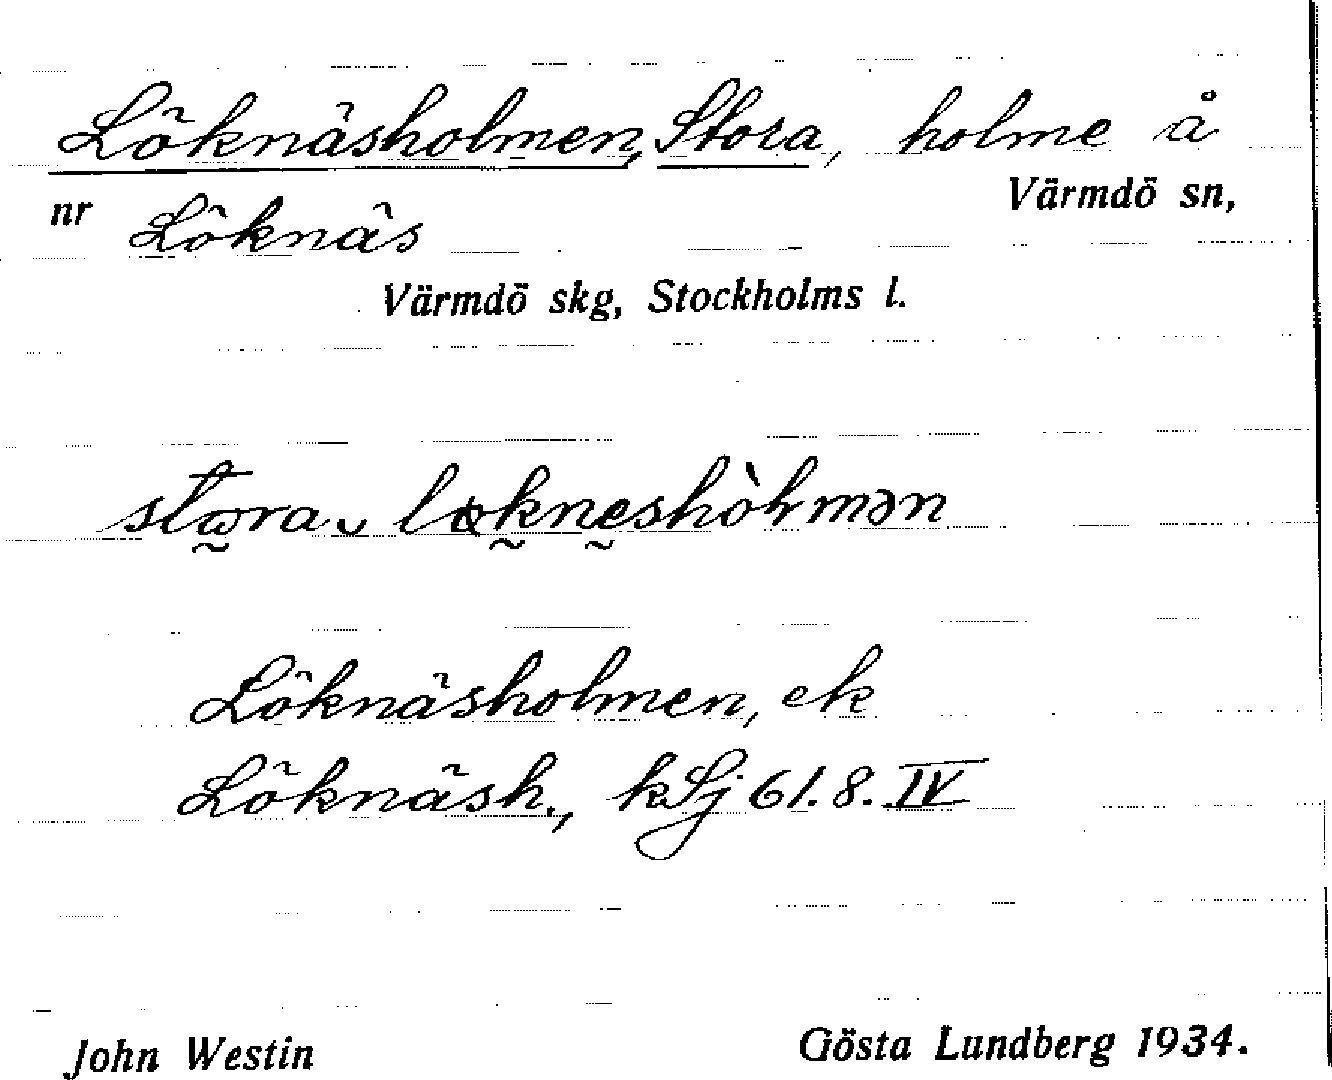 Löknäsholmen, Stora, holme å
nr Löknäs Värmdö sn,
Värmdö skg, Stockholms l.
Löknäsholmen, ek
Löknäsh., kSj 61.8.IV
John Westin Gösta Lundberg 1934.